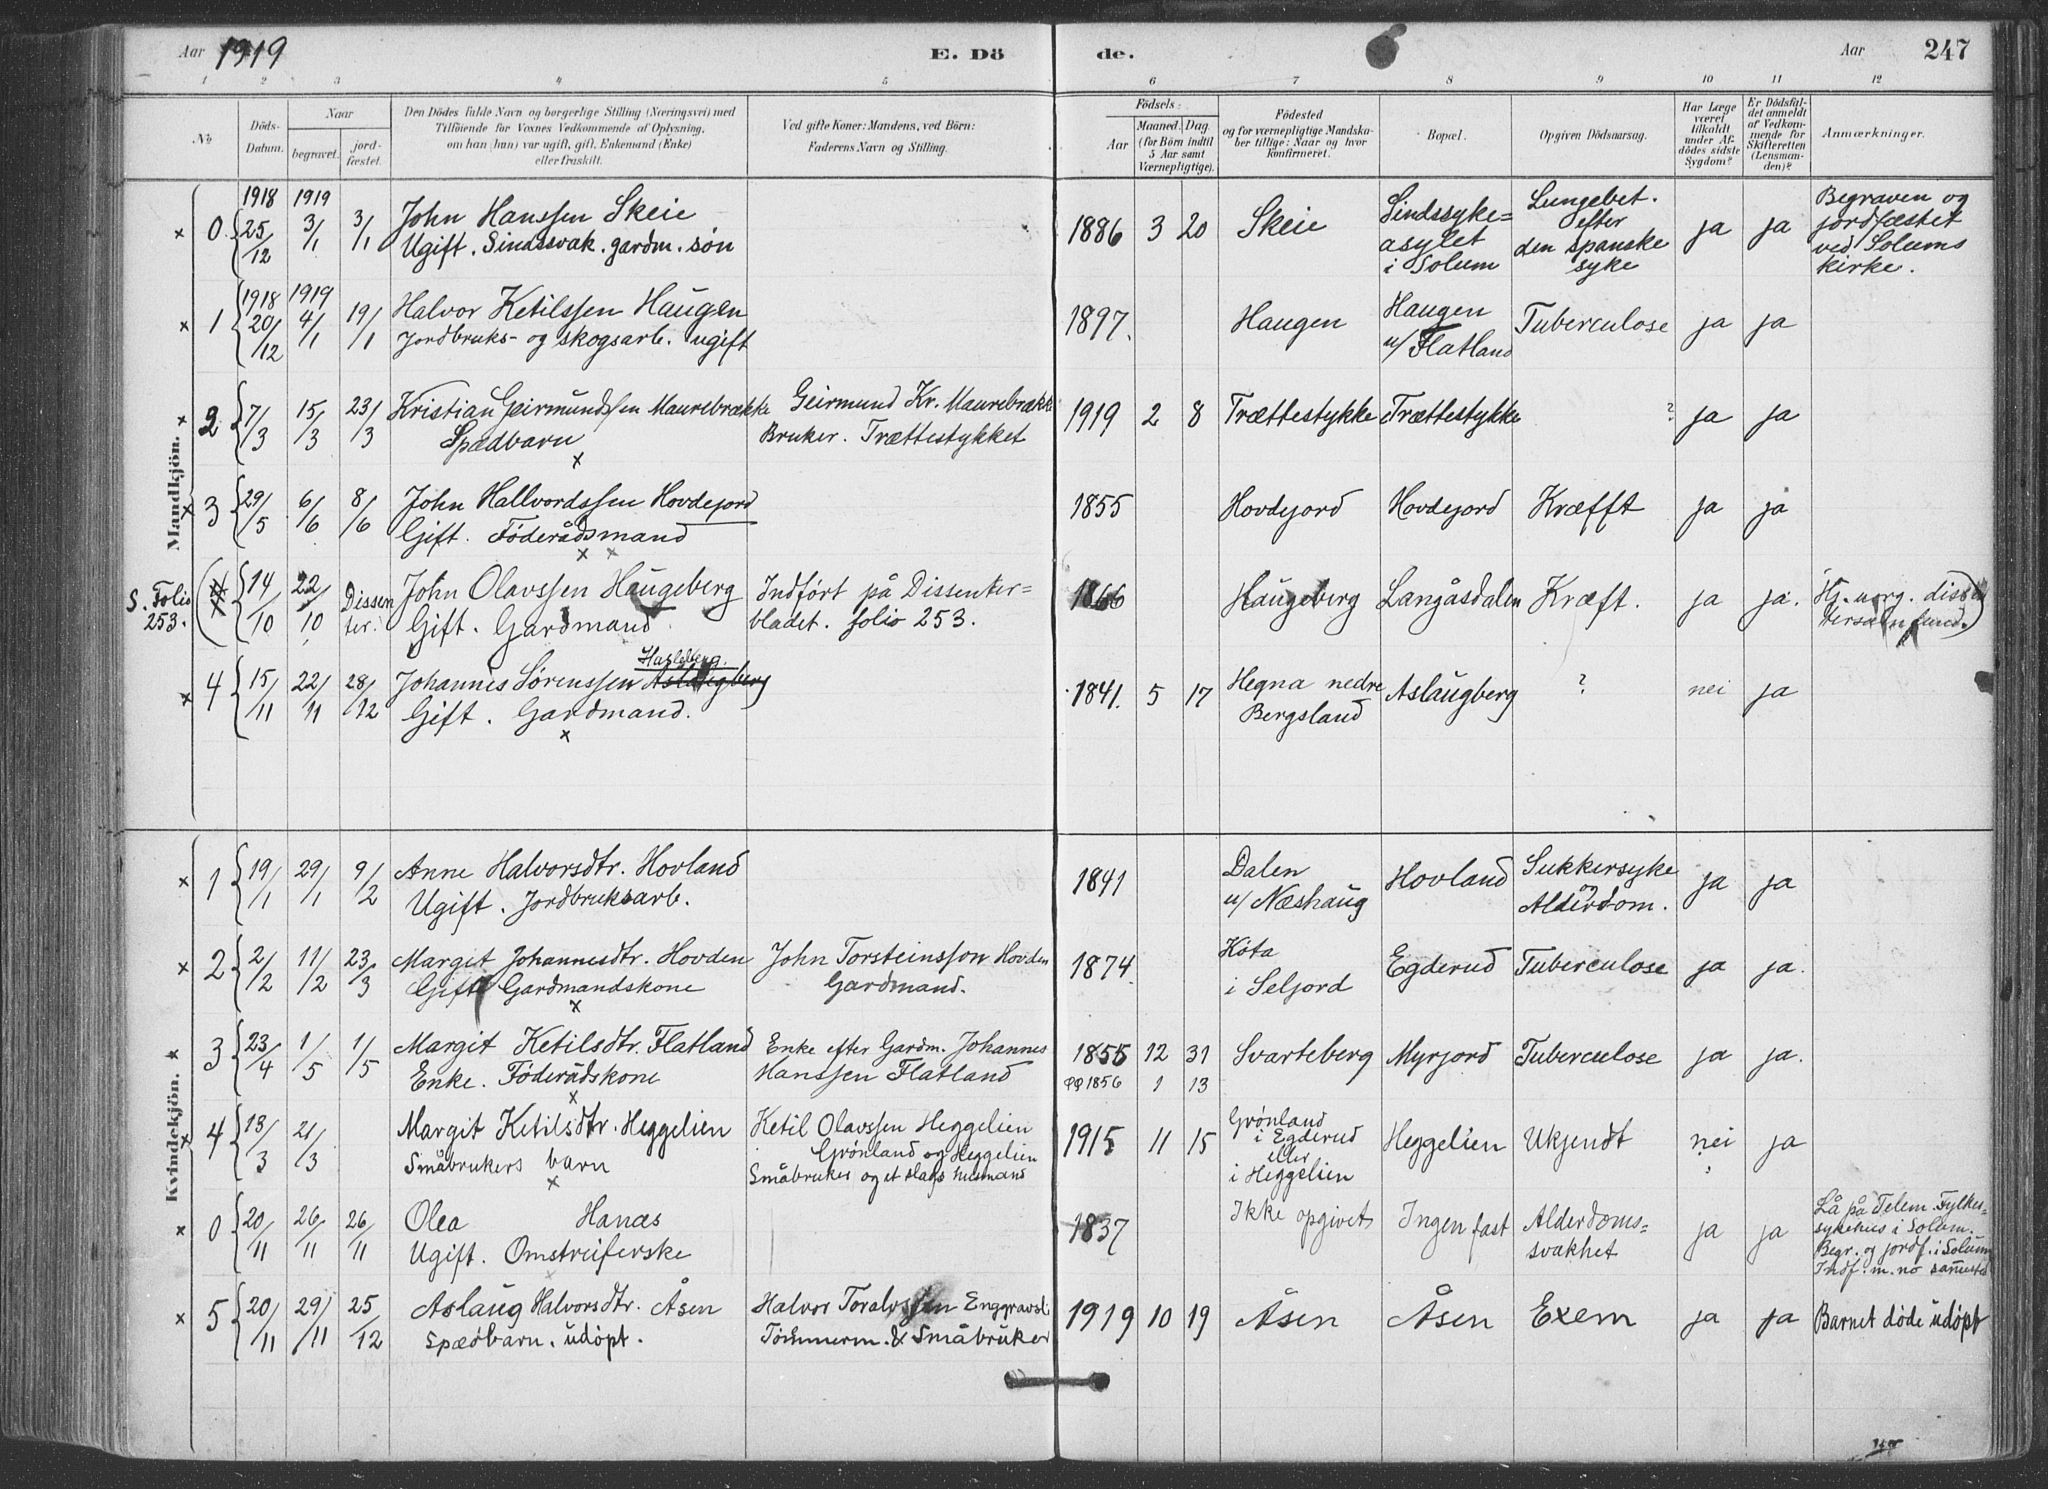 Aar 1919 E. Dö de. Aar 247
1 2 3 4 5 6 7 8 9 10 11 12
No
Döds-Datum.
Naar
begravet.
jordfæstet.
Den Dödes fulde Navn og borgerlige Stilling (Næringsvei) med
Tilföiende for Voxnes Vedkommende af Oplysning,
om han (hun) var ugift, gift, Enkemand (Enke)
eller fraskilt.
Ved gifte Koner: Mandens, ved Börn:
Faderens Navn og Stilling.
Födsels:
Aar
Maaned. Dag
(for Börn indtil
5 Aar samt
Værnepligtige).
Födested
og for værnepligtige Mandska-
ber tillige: Naar og hvor
konfirmeret.
Bopæl.
Opgiven Dödsaarsag.
Har Læge
været
tilkaldt
under Af-
dödes sidste
Sygdom?
Er Dödsfal-
det anmeldt
af Vedkom-
mende for
Skifteretten
(Lensman-
den)?
Anmærkninger.
Mandkjön.
1918 1919
× 0. 25/12 3/1 3/1 John Hanssen Skeie
Ugift. Sindssvak. gardm. søn
1886 3 20 Skeie
Sindssyke=
asylet
i Solum
Lungebet.
efter
den spanske
syke
ja ja
Begraven og
jordfæstet
ved Solums
kirke.
1918 1919
× 1 20/12 4/1 19/1 Halvor Ketilssen Haugen
Jordbruks- og skogsarb. ugift
1897. Haugen
Haugen
u/ Flatland
Tuberculose ja ja
× 2 7/3 15/3 23/3 Kristian Geirmundssen Maurebrække
Spædbarn
×
Geirmund Kr. Maurebrække
Bruker. Trættestykket
1919 2 8 Trættestykke Trættestykke ? ja ja
× 3 29/5 6/6 8/6 John Hallvordssen Hovdejord
Gift. Föderådsmand
× ×
1855 Hovdejord Hovdejord Kræfft ja ja
S. Folio
253.
14/10 22/10 Dissen
ter.
John Olavssen Haugeberg
Gift. Gardmand
Indført på Dissenter=
bladet. folio 253.
1866 Haugeberg Langåsdalen Kræft. ja ja.
Hj. norg. dissen
tersamfund.)
× 4 15/11 22/11 28/12 Johannes Sørenssen Aslaugberg
Gift. Gardmand.
×
1841. 5 17 Hegna nedre
Bergsland
Aslaugberg ? nei ja
Kvindekjön.
× 1 19/1 29/1 9/2 Anne Halvorsdtr. Hovland
Ugift. Jordbruksarb.
1841
Dalen
u/ Næshaug
Hovland
Sukkersyke
og
Alderdom.
ja ja
× 2 2/2 11/2 23/3 Margit Johannesdtr. Hovden
Gift Gardmandskone
×
John Torsteinsson Hovden
Gardmand.
1874.
Kota
i Seljord
Egderud Tuberculose ja ja.
× 3 23/4 1/5 1/5 Margit Ketilsdtr. Flatland
Enke. Föderådskone
×
Enke efter Gardm. Johannes
Hanssen Flatland
1855 12 31
1856 1 13
Svarteberg Myrjord Tuberculose ja ja.
× 4 13/3 21/3 Margit Ketilsdtr. Heggelien
Småbrukers barn
×
Ketil Olavssen Heggelien
Grønland og Heggelien
Småbruker og et slags husmand
1915 11 15
Grønland
i Egderud
eller
i Heggelien
Heggelien Ukjendt nei ja
× 0 20/11 26/11 26/11 Olea Hanæs
Ugift. Omstreiferske
1837 Ikke opgivet Ingen fast
Alderdoms-
svakhet
ja ja
Lå på Telem. Fylkes-
sykehus i Solum.
Begr. og jordf. i Solum
Indf. m. no sammested
× 5 20/11 29/11 25/12 Aslaug Halvorsdtr. Åsen
Spædbarn. udöpt.
Halvor Toralvssen Enggravsli
Tömmerm. & Småbruker
1919 10 19 Åsen Åsen Exem ja ja Barnet døde udöpt